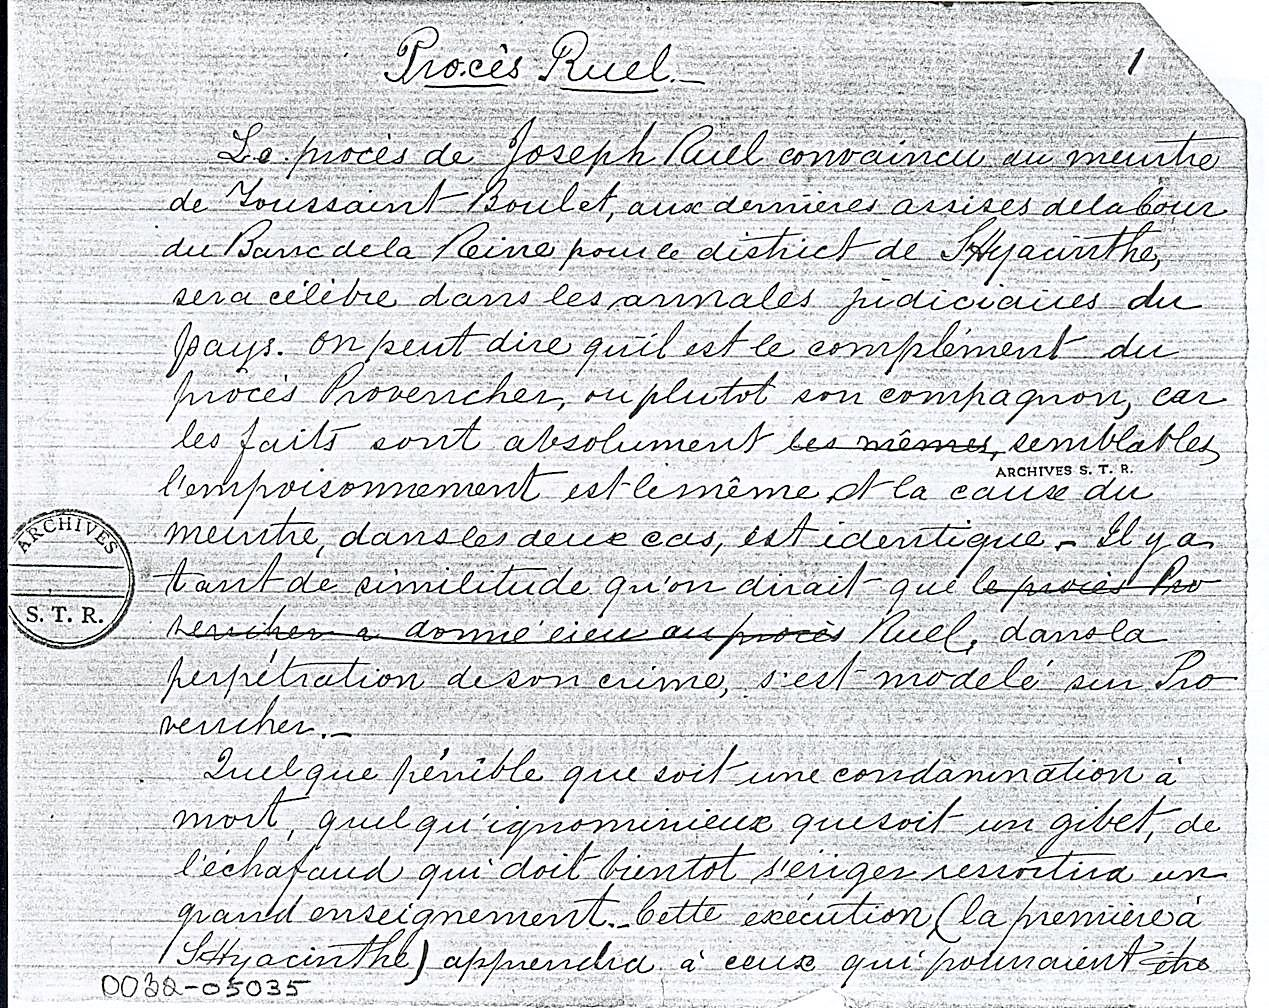 Procès Ruel.
1
Le procès de Joseph Ruel convaincu du meurtre
de Toussaint Boulet, aux dernières assises de la Cour
du Banc de la Reine pour le district de St Hyacinthe,
sera célèbre dans les annales judiciaires du
pays. On peut dire qu'il est le complément du
procès Provencher, ou plutot son compagnon, car
les faits sont absolument les mêmes, semblables,
ARCHIVES S. T. R.
l'empoisonnement est le même et la cause du
meurtre, dans les deux cas, est identique. - Il y a
tant de similitude qu'on dirait que le procès Pro
vencher a donné lieu au procès Ruel, dans la
perpétration de son crime, s'est modelé sur Pro
vencher. -
Quelque pénible que soit une condamnation à
mort, quelqu'ignominieux que soit un gibet, de
l'échafaud qui doit bientot s'ériger ressortira un
grand enseignement. - Cette exécution, (la première à
St Hyacinthe) apprendra à ceux qui pourraient être
ARCHIVES
S. T. R.
0032-05035